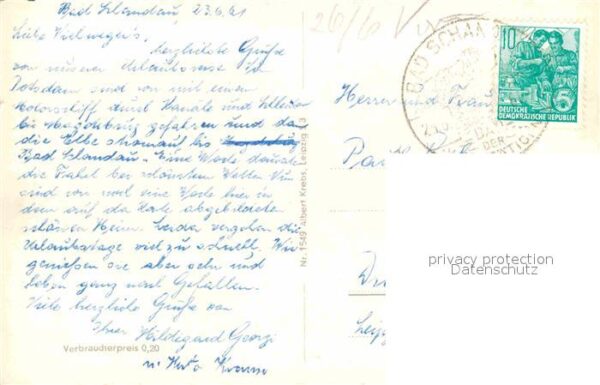 Bad Schandau, 23.6.61
Liebe
herzliche Grüße
von unserer Urlaubsreise
Potsdam sind wir mit einem
Motorschiff durch Kanäle und
bis Magdeburg gefahren und da
die Elbe stromauf bis
Bad Schandau. Eine Woche dauerte
die Fahrt bei schönstem Wetter. Nun
sind wir noch eine Woche hier in
dem auf der Karte abgebildeten
schönen Heim. Leider vergehen die
Urlaubstage viel zu schnell. Wir
genießen sie aber sehr und
leben ganz nach Gefallen.
Viele herzliche Grüße von
Ihrer Hildegard
u.
Verbraucherpreis 0,20
Nr. 1549 Albert Krebs, Leipzig
26/6
BAD SCHANDAU
10
5
DEUTSCHE
DEMOKRATISCHE REPUBLIK
Herrn und Frau
privacy protection
Datenschutz